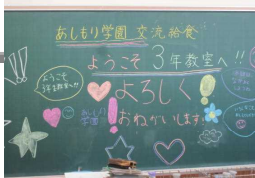 あしもり学園 交流給食
ようこそ 3年教室へ!!
ようこそ
3年教室へ!!
よろしく!
おねがいします!